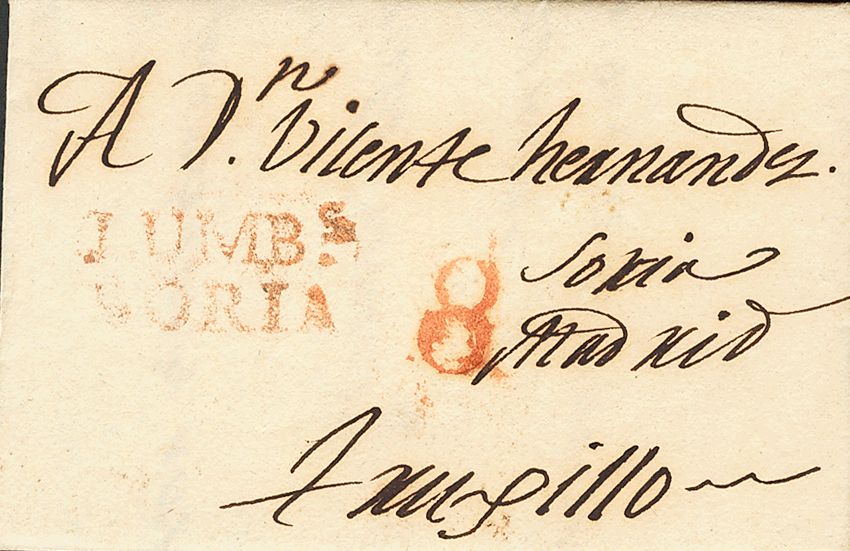 A D.n Vicente hernandez.
LUMB.s
SORIA
8
Soria
Madrid
truxillo